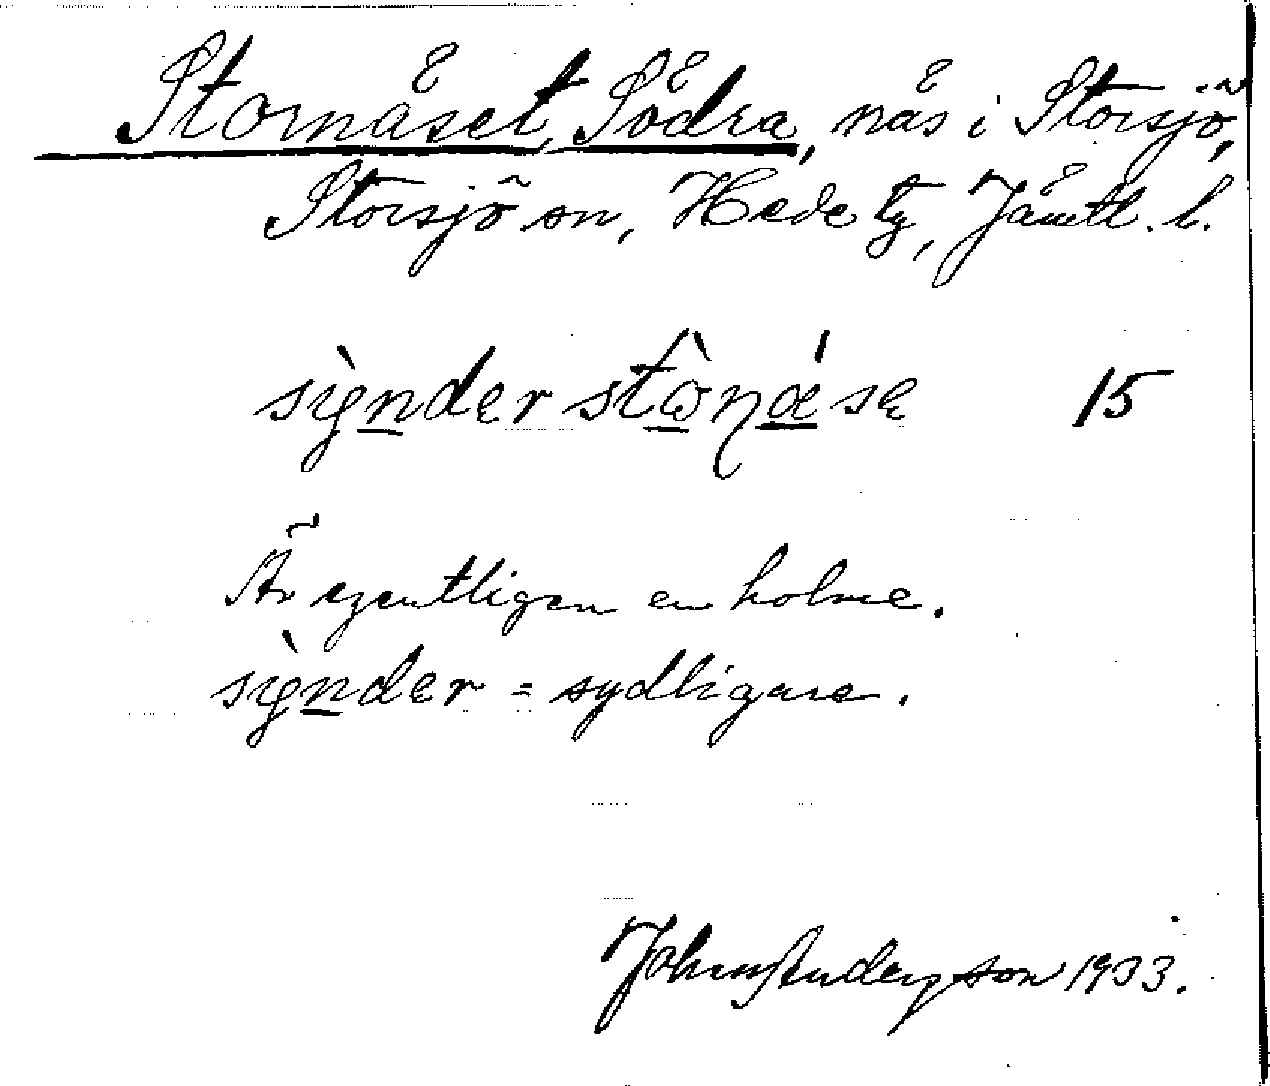 Stornäset, Södra, näs i Storsjö,
Storsjö sn, Hede tg, Jämtl. l.
sỳnder stò̱ṉa̱̍se 15
Är egentligen en holme.
sỳnder = sydligare.
Johan Anderzson 1933.